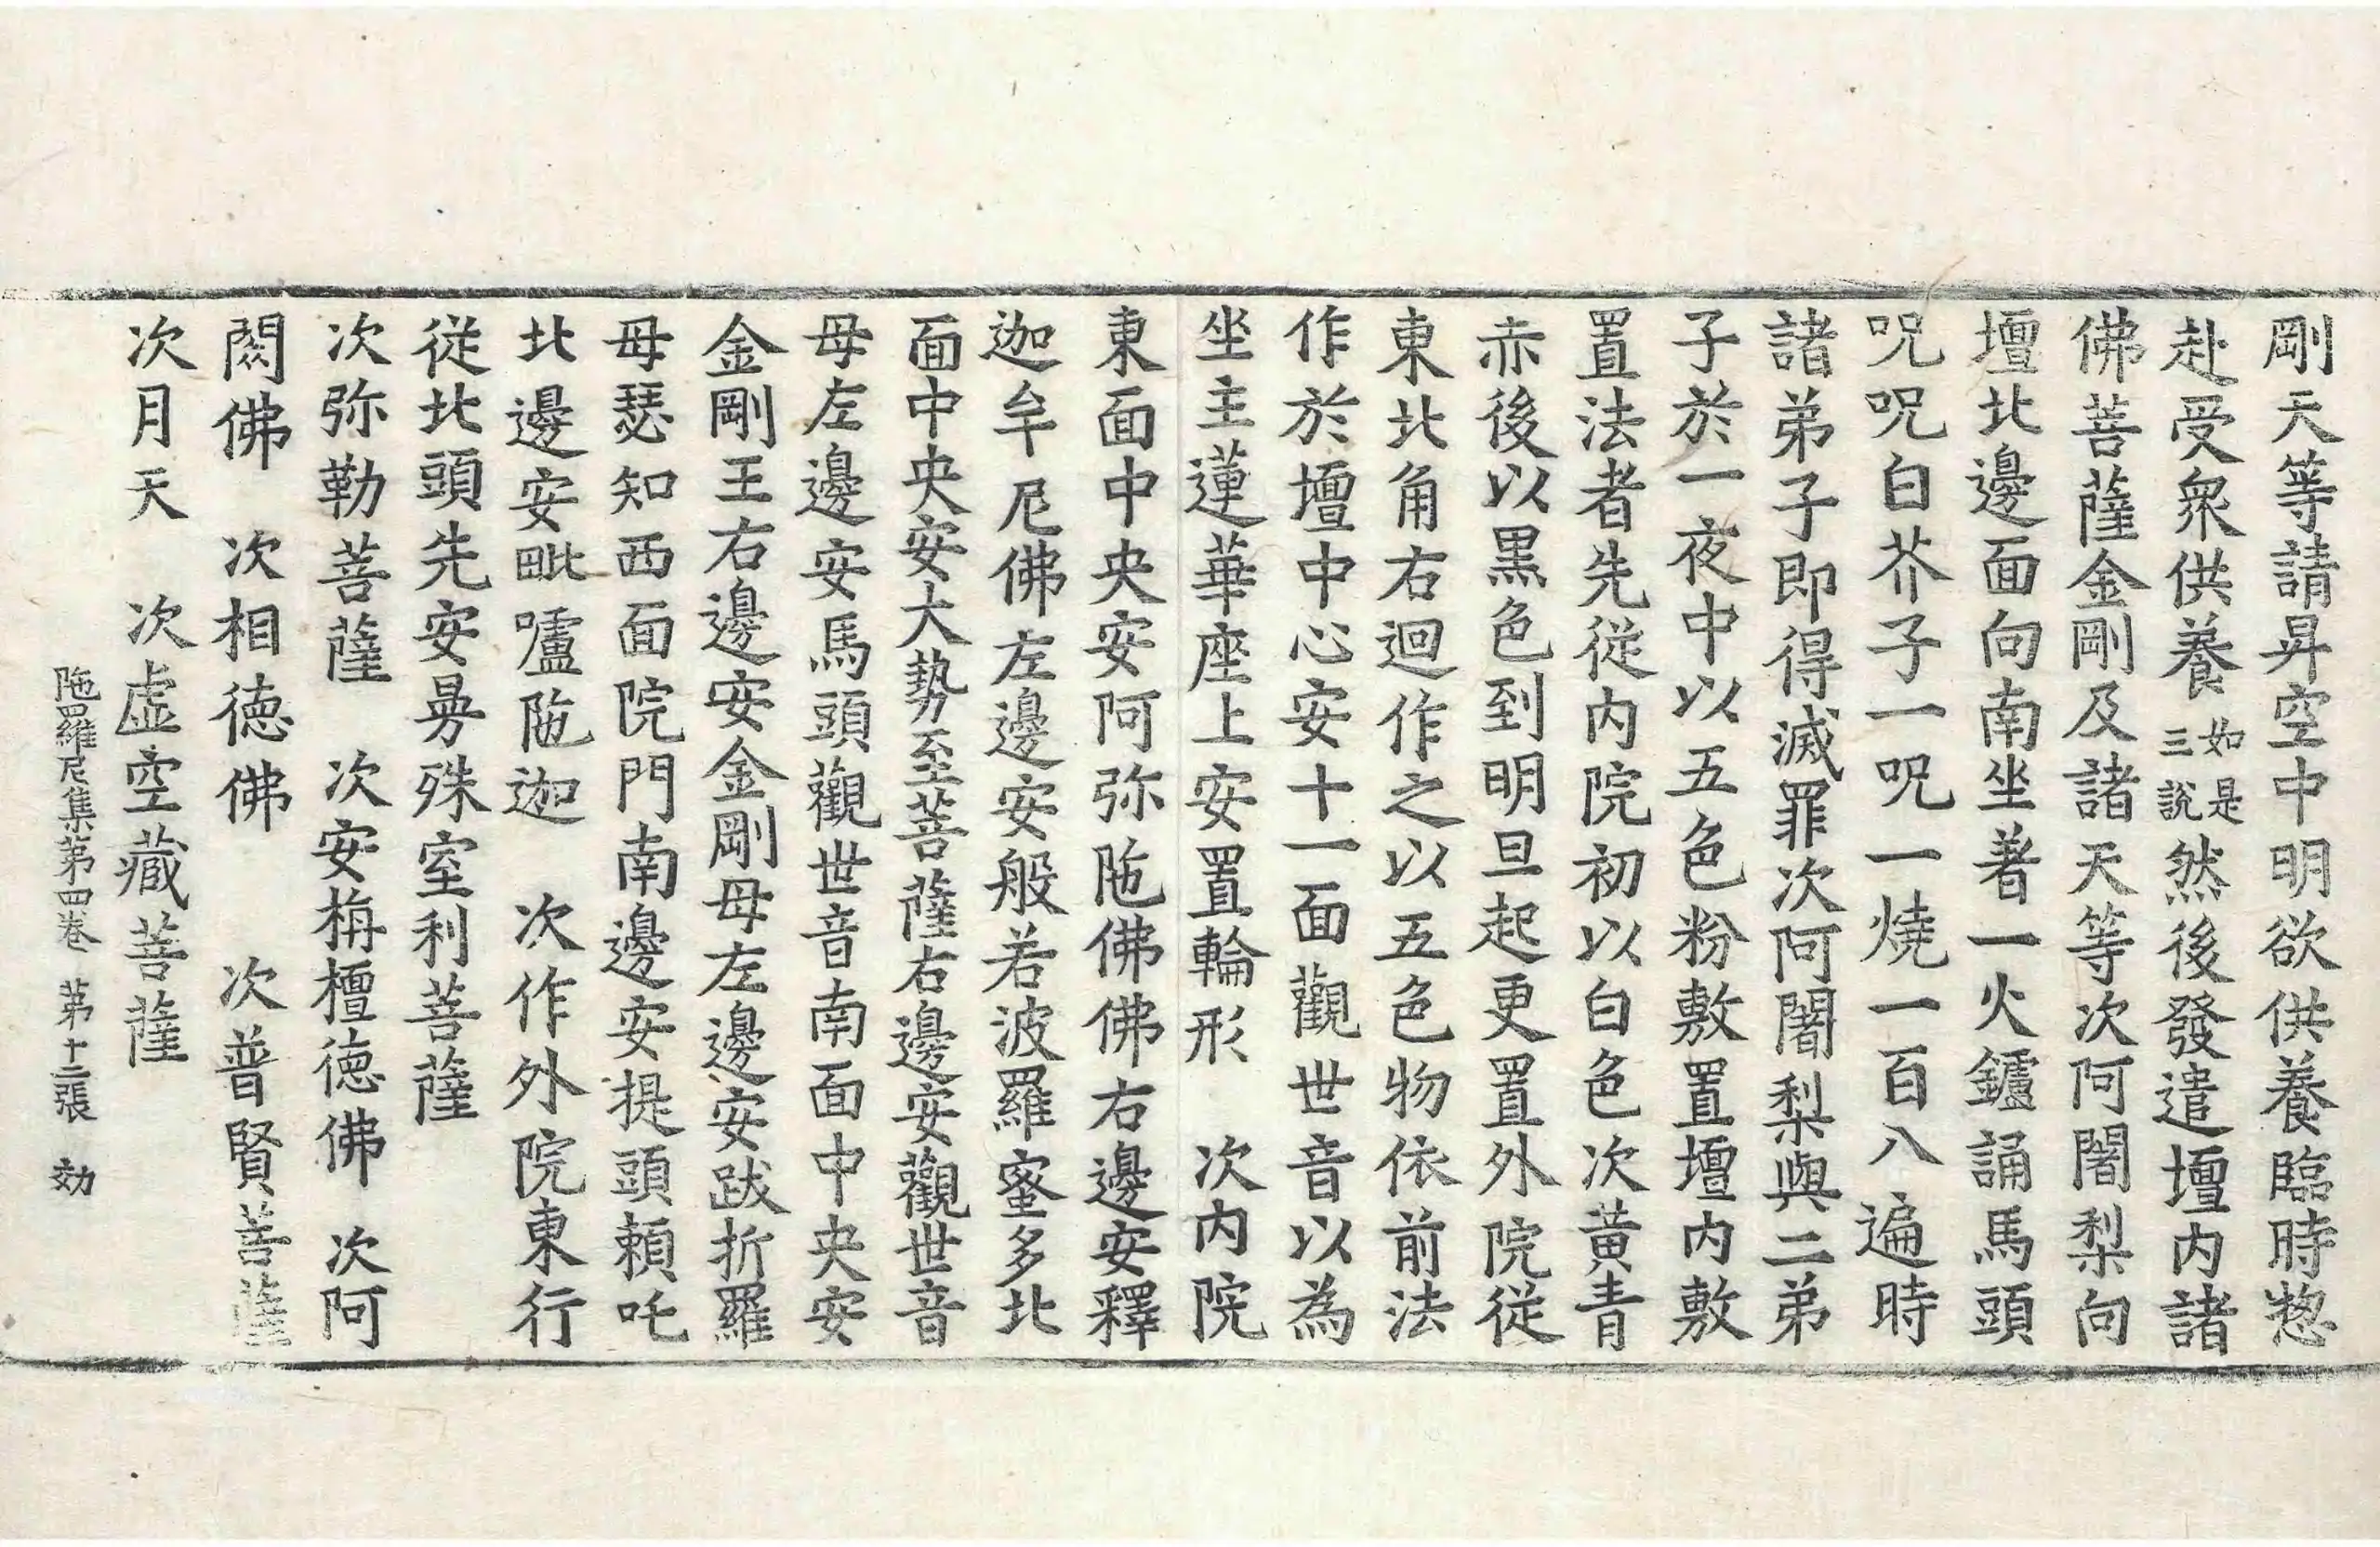 剛天等請昇空中明欲供養臨時惣
赴受衆供養如是三說然後發遣壇內諸
佛菩薩金剛及諸天等次阿闍梨向
壇北邊面向南坐著一火鑪誦馬頭
呪呪白芥子一呪一燒一百八遍時
諸弟子即得滅罪次阿闍梨與二弟
子於一夜中以五色粉敷置壇內敷
置法者先從內院初以白色次黃青
赤後以黑色到明旦起更置外院從
東北角右迴作之以五色物依前法
作於壇中心安十一面觀世音以為
坐主蓮華座上安置輪形　次內院
東面中央安阿弥陁佛佛右邊安釋
迦牟尼佛左邊安般若波羅蜜多北
面中央安大勢至菩薩右邊安觀世音
母左邊安馬頭觀世音南面中央安
金剛王右邊安金剛母左邊安跋折羅
母瑟知西面院門南邊安提頭頼吒
北邊安毗嚧陁迦　次作外院東行
從北頭先安曼殊室利菩薩
次弥勒菩薩　次安栴檀德佛　次阿
閦佛　次相德佛　次普賢菩薩
次月天　次虛空藏菩薩
陁羅尼集第四卷　第十二張　効